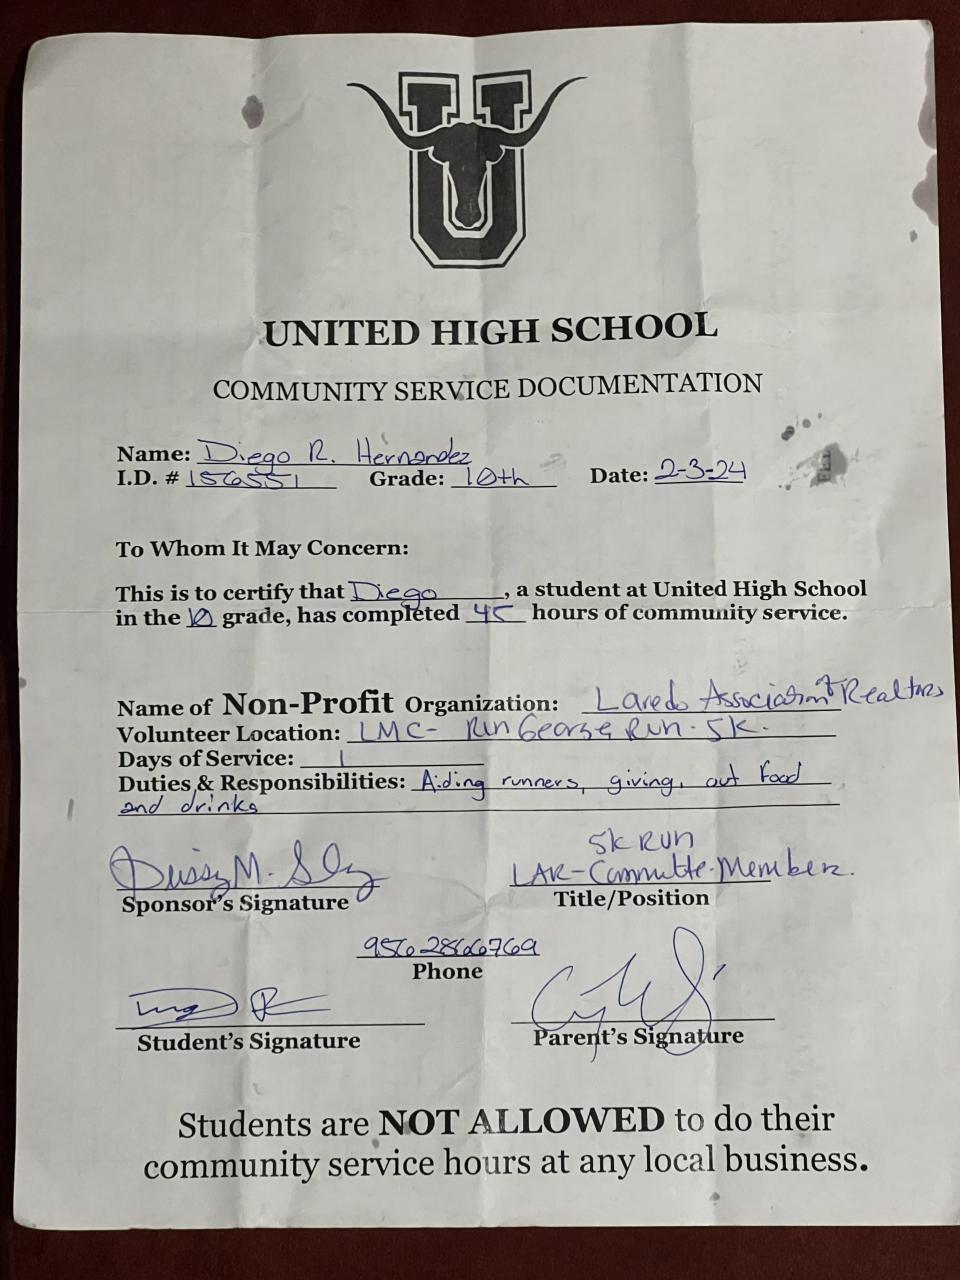 U
UNITED HIGH SCHOOL
COMMUNITY SERVICE DOCUMENTATION
Name: Diego R. Hernandez
I.D. # 156551 Grade: 10th Date: 2-3-24
To Whom It May Concern:
This is to certify that Diego, a student at United High School
in the 10 grade, has completed 45 hours of community service.
Name of Non-Profit Organization: Laredo Association of Realtors
Volunteer Location: LMC- Run George Run. 5K.
Days of Service: 1
Duties & Responsibilities: Aiding runners, giving, out food
and drinks
5k RUN
LAR-Committe-Member.
Sponsor's Signature Title/Position
Phone
Student's Signature Parent's Signature
Students are NOT ALLOWED to do their
community service hours at any local business.